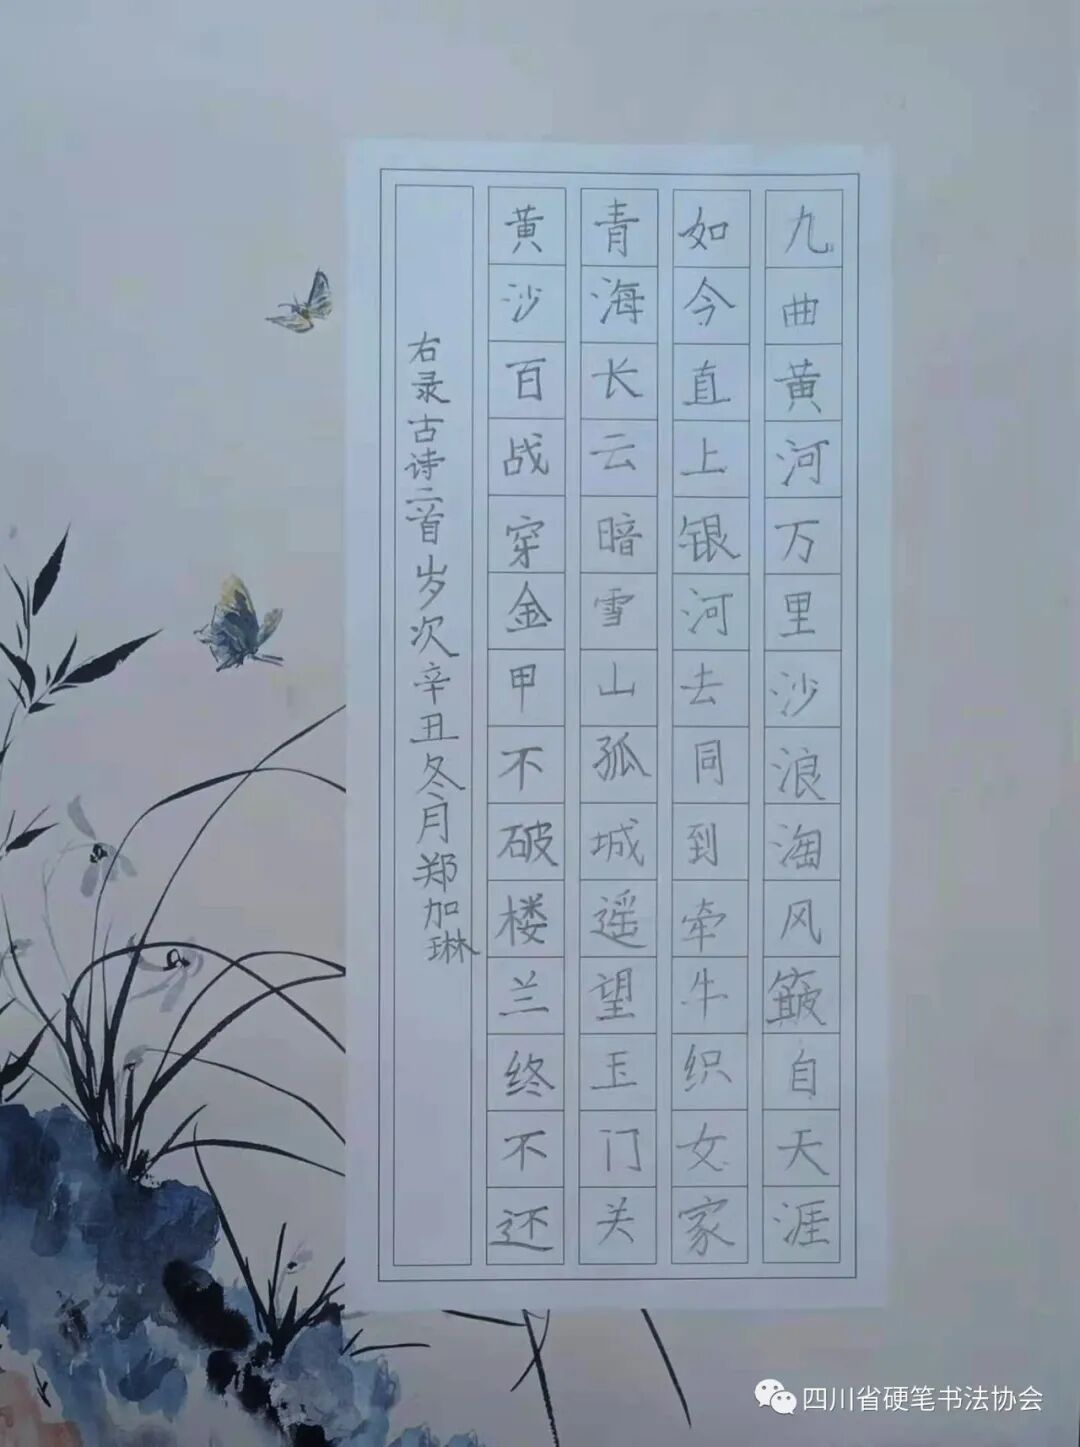 九曲黄河万里沙浪淘风簸自天涯
如今直上银河去同到牵牛织女家
青海长云暗雪山孤城遥望玉门关
黄沙百战穿金甲不破楼兰终不还
右录古诗二首岁次辛丑冬月郑加琳
四川省硬笔书法协会